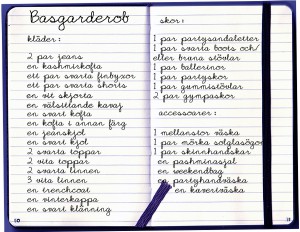 Basgarderob
kläder:
2 par jeans
en kashmirkofta
ett par svarta finbyxor
ett par svarta shorts
en vit skjorta
en välsittande kavaj
en svart kofta
en kofta i annan färg
en jeanskjol
en svart kjol
2 svarta toppar
2 vita toppar
2 svarta linnen
3 vita linnen
en trenchcoat
en vinterkappa
en svart klänning
10
skor:
1 par partysandaletter
1 par svarta boots och/
eller bruna stövlar
1 par ballerinor
1 par partyskor
1 par gummistövlar
2 par gympaskor
accessoarer:
1 mellanstor väska
1 par mörka solglasögon
1 par skinnhandskar
en pashminasjal
en weekendbag
en partyhandväska
en kuvertväska
11